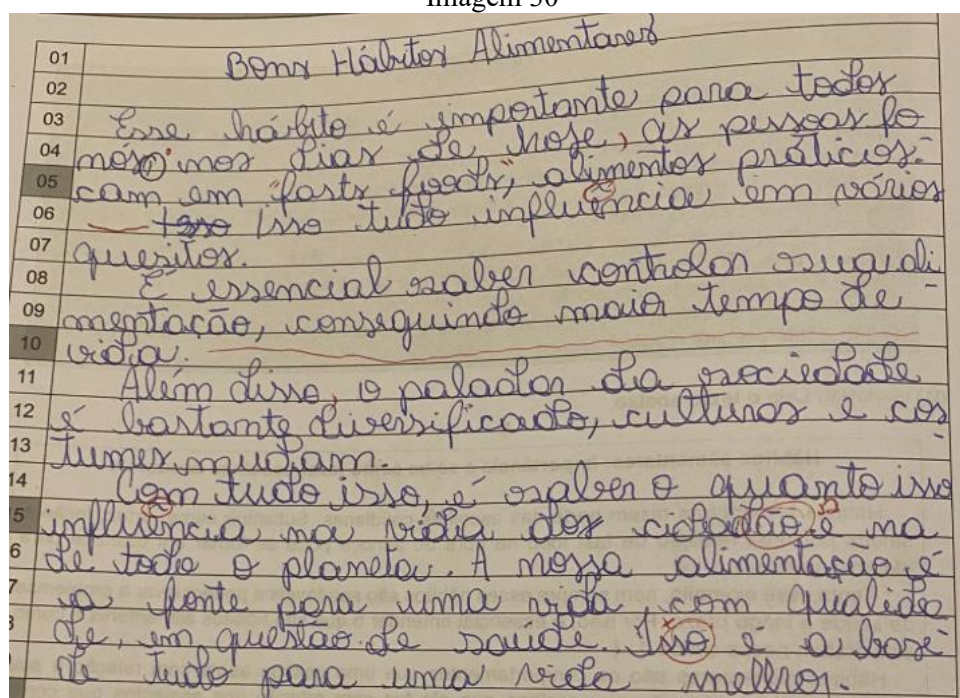 Imagem 30
01 Bons Hábitos Alimentares
02
03 Esse hábito é importante para todos
04 nós, nos dias de hoje, as pessoas fo
05 cam em "fasts foods", alimentos práticos.
06 Isso tudo influência em vários
07 quesitos.
08 É essencial saber controlar sua ali
09 mentação, conseguindo maior tempo de
10 vida.
11 Além disso, o paladar da sociedade
12 é bastante diversificado, culturas e cos
13 tumes mudam.
14 Com tudo isso, é saber o quanto isso
5 influência na vida dos cidadão, e na
6 de todo o planeta. A nossa alimentação é
7 a fonte para uma vida, com qualida
8 de, em questão de saúde. Isso é a base
de tudo para uma vida melhor.